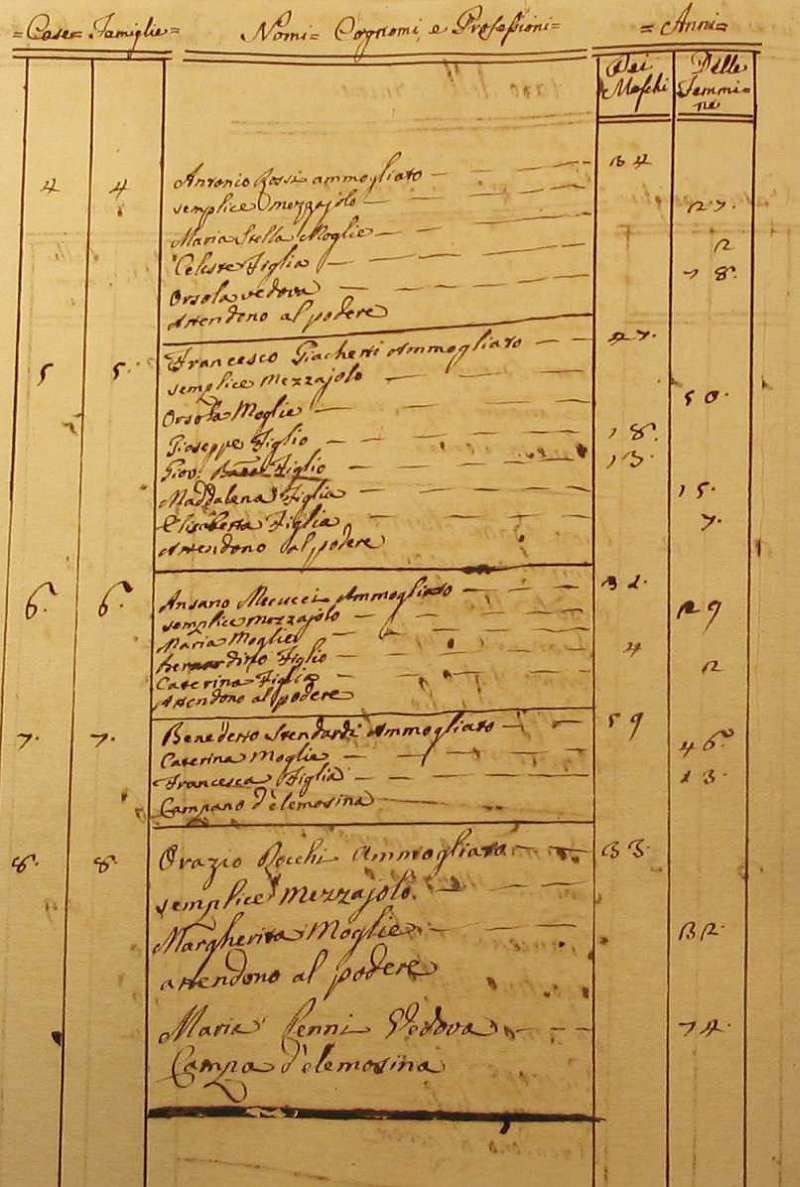 =Case= Famiglie= Nomi= Cognomi, e Professioni= =Anni=
Dei Maschi Delle Femmine
4 4 Antonio Rossi ammogliato 34
semplice mezzajolo
Maria Stella Moglie 27.
Celeste Figlia 2
Orsola vedova 78.
Attendono al podere
5 5. Francesco Giachetti Ammogliato 47.
semplice Mezzajolo
Orsola Moglie 50.
Gioseppe Figlio 18.
Giov: Batta Figlio 13.
Maddalena Figlia 15.
Elisabetta Figlia 7.
Attendono al podere
6. 6. Ansano Mecucci Ammogliato 32.
semplice Mezzajolo
Maria Moglie 29
Bernardino Figlio 4
Caterina Figlia 2
Attendono al podere
7. 7. Benedetto Stendardi Ammogliato 59
Caterina Moglie 46.
Francesca Figlia 13.
Campano d'elemosina
8. 8. Orazio Rocchi Ammogliato 33.
semplice Mezzajolo.
Margherita Moglie 32.
attendono al podere
Maria Penni Vedova 74.
Campa d'elemosina